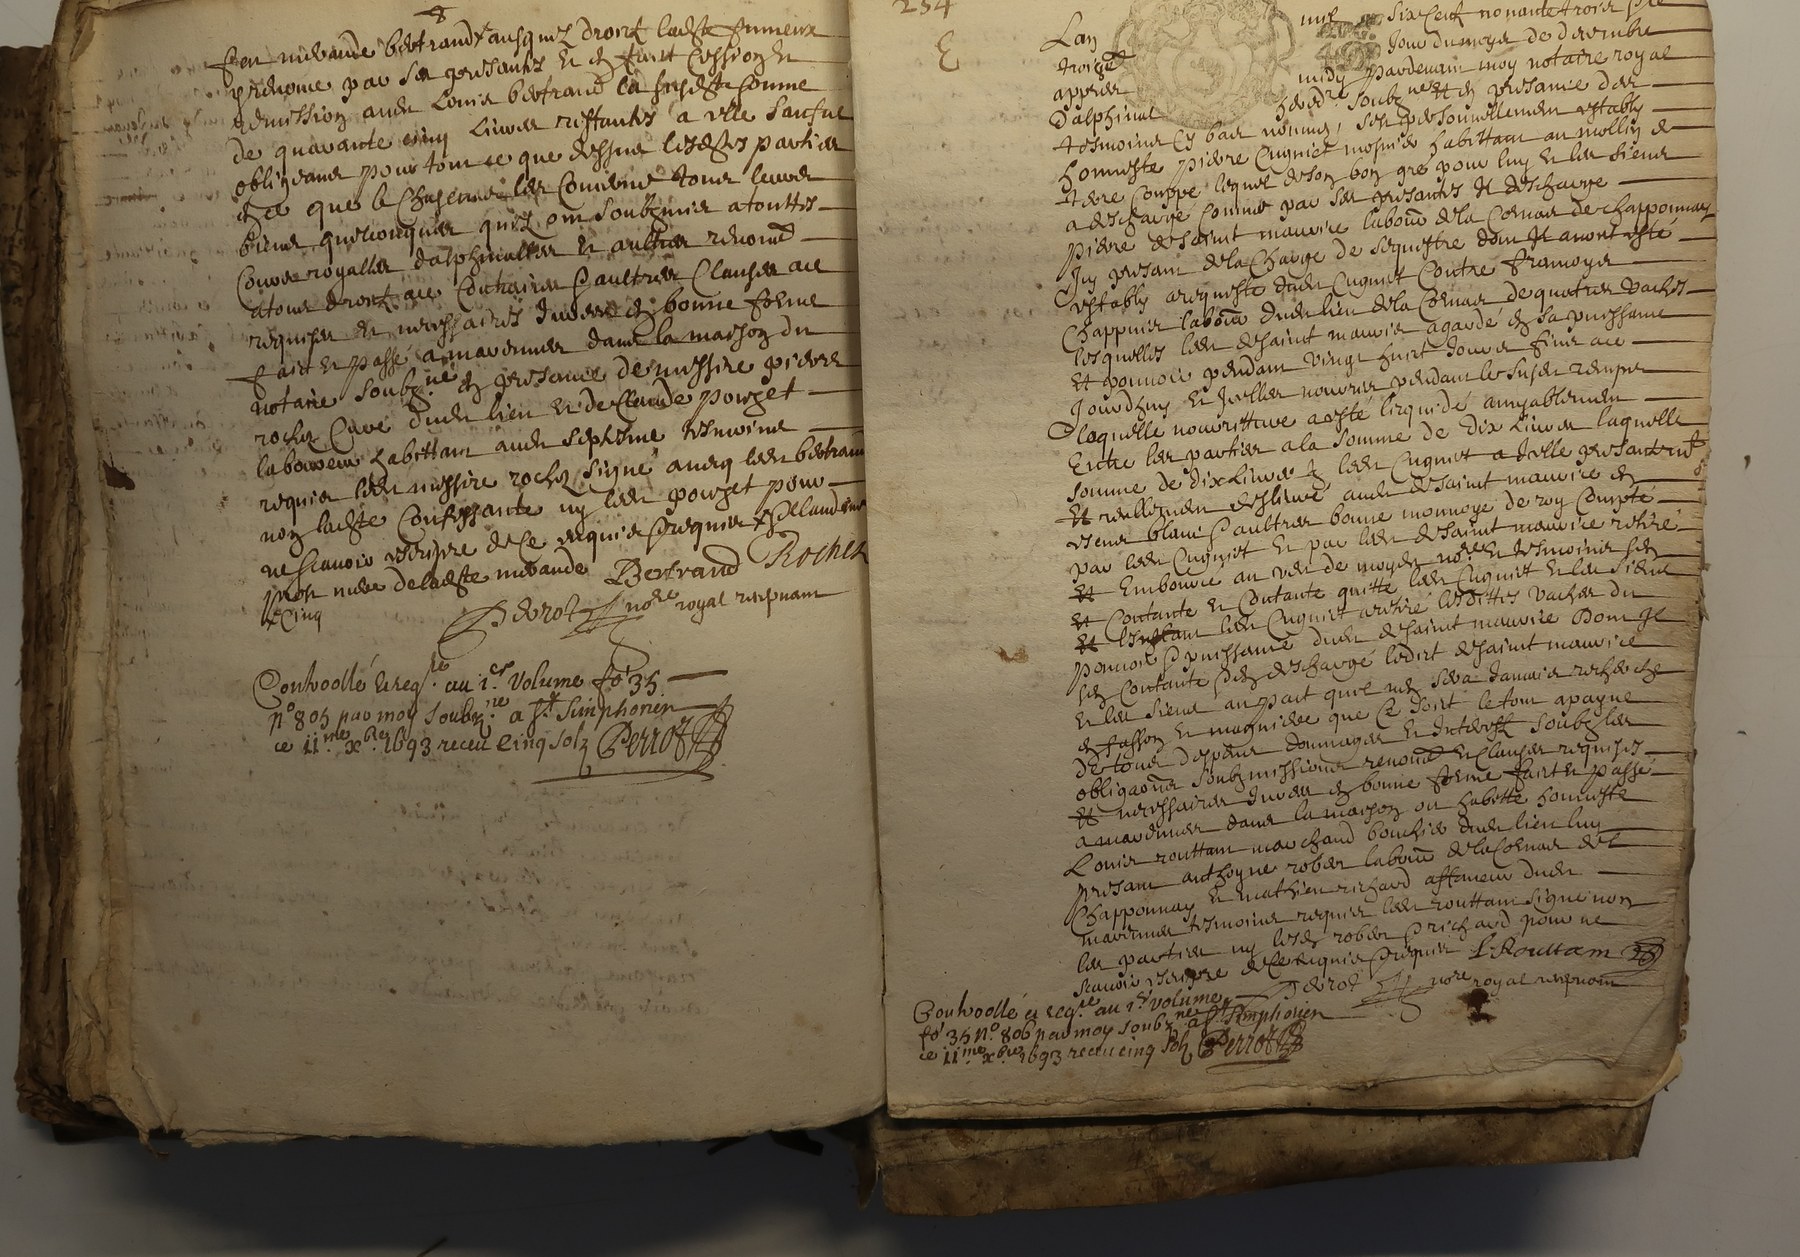 feu nicande bertrand ausquelz droitz ladte
renonce par ses presantes et en fait cession et
remission audit Louis bertrand la susdte somme
de quarante cinq livres restantes a elle sansfuit
obligeant pour tout ce que dessus lesdtes parties
en ce que le chascune les concerne tous leurs
biens quelconques quilz ont soubzmis a touttes
Cours royalles dalphinalles et aultres renoncé
a tous droitz au contraires & aultres clauses
requises et necessaires Jurées en bonne forme
fait et passé a marennes dans la maison du
notaire soubz.né en presance de messire pierre
rochet curé dudit lieu et de Claude poyzet
laboureur habittant audit tesmoins
requis ledt messire rochet signé aveq ledt bertrand
non ladte confessante ny ledt poyzet pour
ne scavoir escripre de ce enquis & requis
mere de ladte nicande Bertrand Rochet
Cinq
Perrot nore royal recepvant
Controollé & reg.re au 1.er volume fo 35
No 805 par moy soubz.né a St Simphorien
ce 11me xbre 1693 receu cinq solz Perrot
234
E
Lan mil six cent nonante trois
troizé Jour du moys de decembre
appres midy pardevant moy notaire royal
dalphinal heredre soubz.né et en presance des
tesmoins cy bas nommés, sest personnellement estably
honneste pierre Cugniet mosnier habittant au mollin de
lequel de son bon gré pour luy et les siens
a deschargé comme par ses presantes Il descharge
pierre de saint maurice labour de la Cornas de chapponnay
Icy presant de la charge de sequestre dont Il avoit esté
estably a requeste dudt Cugniet Contre francoys
Chappuis labour dudt lieu de la Cornas de quatres vaches
lesquelles ledt de saint maurice a gardé en sa puissance
et pouvoir pendant vingt huit Jours finis au
Jourdhuy et Icelles nourries pendant le susdt temps
laquelle nourritture a esté liquidé amyablement
Entre les parties a la somme de dix livres laquelle
somme de dix livres ledt Cugniet a Icelle presantemt
et reellement deslivré audt de saint maurice en
escus blanc & aultres bonne monnoye de roy compté
par ledt Cugniet et par ledt de saint maurice retiré
et Embourcé au veu de moydt nore et tesmoins sen
et Contante et Contante quitte ledt Cugniet et les siens
et ledt Cugniet a retiré lesdittes vaches du
pouvoir & puissance dudt de saint maurice dont Il
sen contante & en descharge ledit de saint maurice
et les siens au pait quil nen sera Jamais recherché
en fasson et magniere que ce soit le tout a payne
de tous despens dommages et Interestz soubz les
obligaons soubzmissions renonces et clauses requises
et necessaires Jurées en bonne forme fait et passé
a marennes dans la maison ou habitte honneste
Louis routtam marchand bouchier dudt lieu luy
presant anthoyne rober labour de la Cornas de
Chapponnay et mathieu richard affaneur dudt
marennes tesmoins requis ledt routtam signé non
les parties ny lesdt rober & richard pour ne
scavoir escripre de ce enquis & requis L Routtam
Perrot nore royal recepvant
Controollé et reg.re au 1er volume
fo 35 No 806 par moy soubz.né a St Simphorien
ce 11me xbre 1693 receu cinq solz Perrot